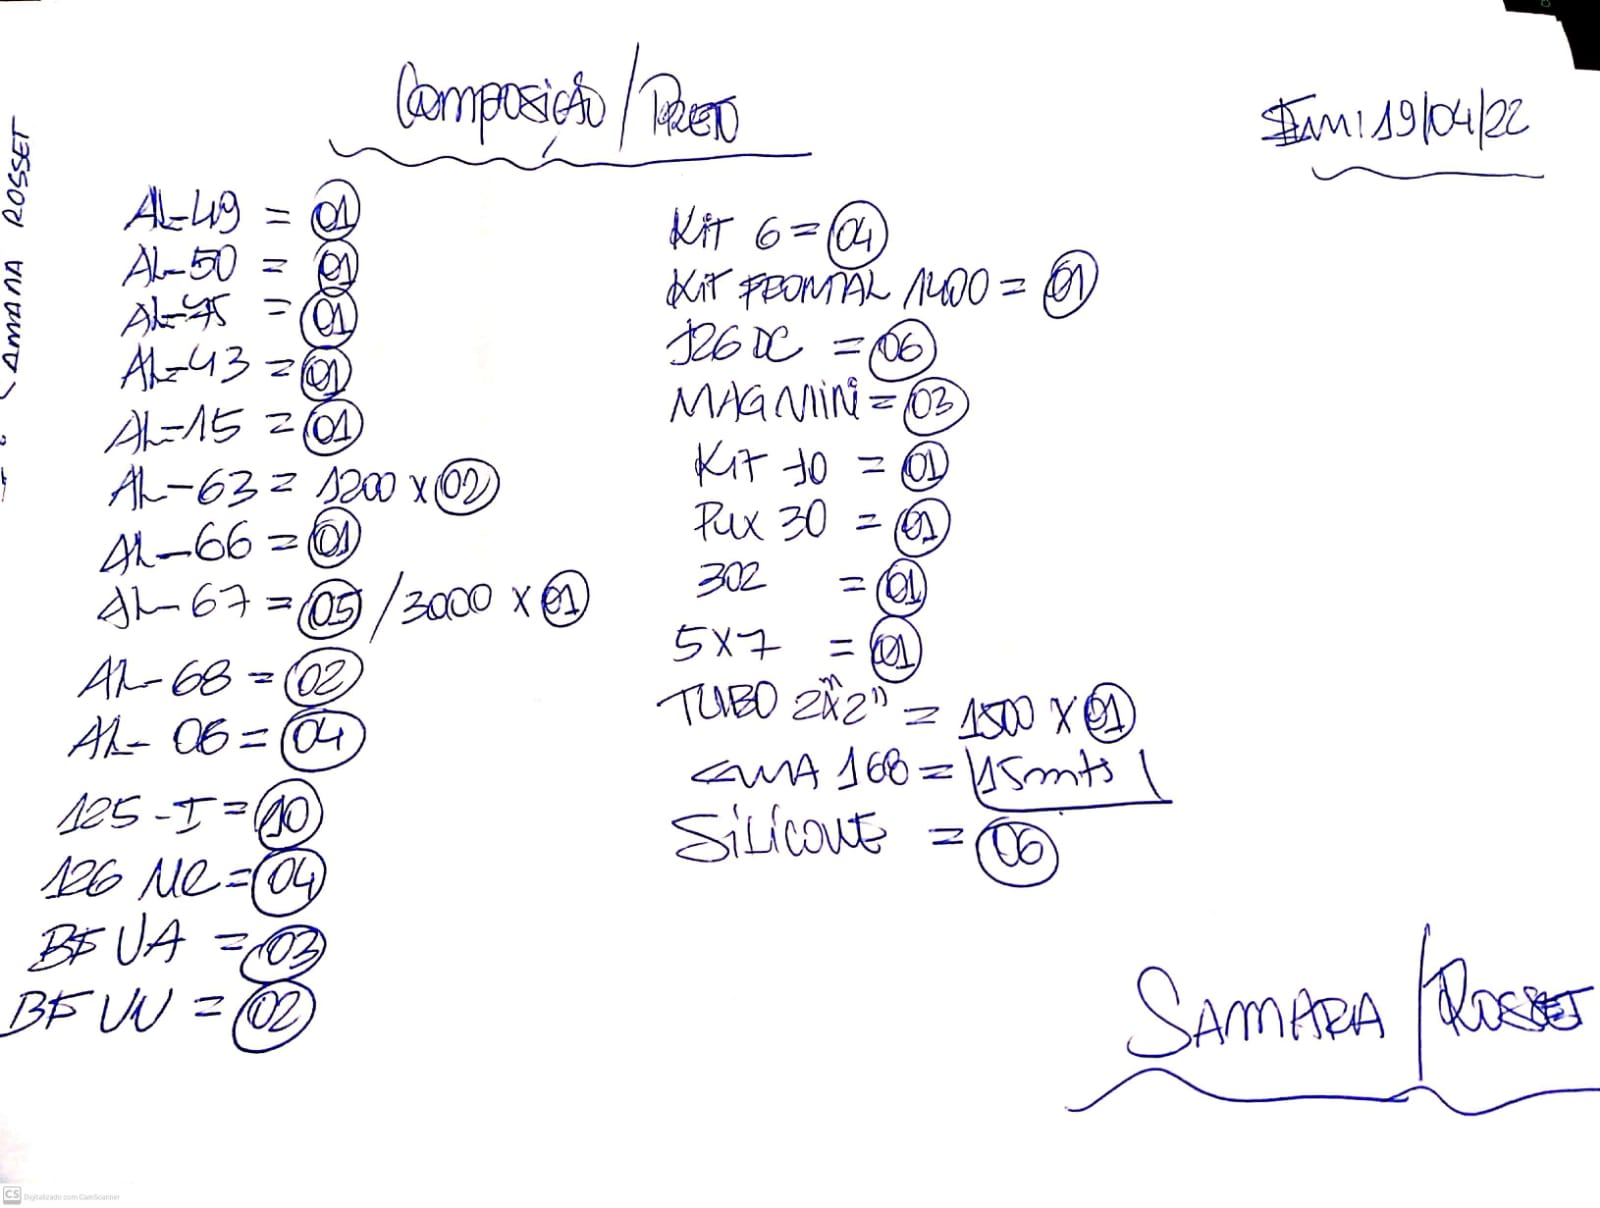 Composição / PRETO
Em: 19/04/22
AL-49 = 01
AL-50 = 01
AL-45 = 01
AL-43 = 01
AL-15 = 01
AL-63 = 1200 x 02
AL-66 = 01
AL-67 = 05 / 3000 x 01
AL-68 = 02
AL-06 = 04
125-I = 10
126 NR = 04
BF UA = 03
BF UU = 02
Kit 6 = 04
Kit FRONTAL 1400 = 01
126 DC = 06
MAG MINI = 03
Kit 10 = 01
Pux 30 = 01
302 = 01
5x7 = 01
TUBO 2"x2" = 1500 x 01
168 = 15mts
SILICONE = 06
SAMARA / ROSSET
ROSSET
CS Digitalizado com CamScanner